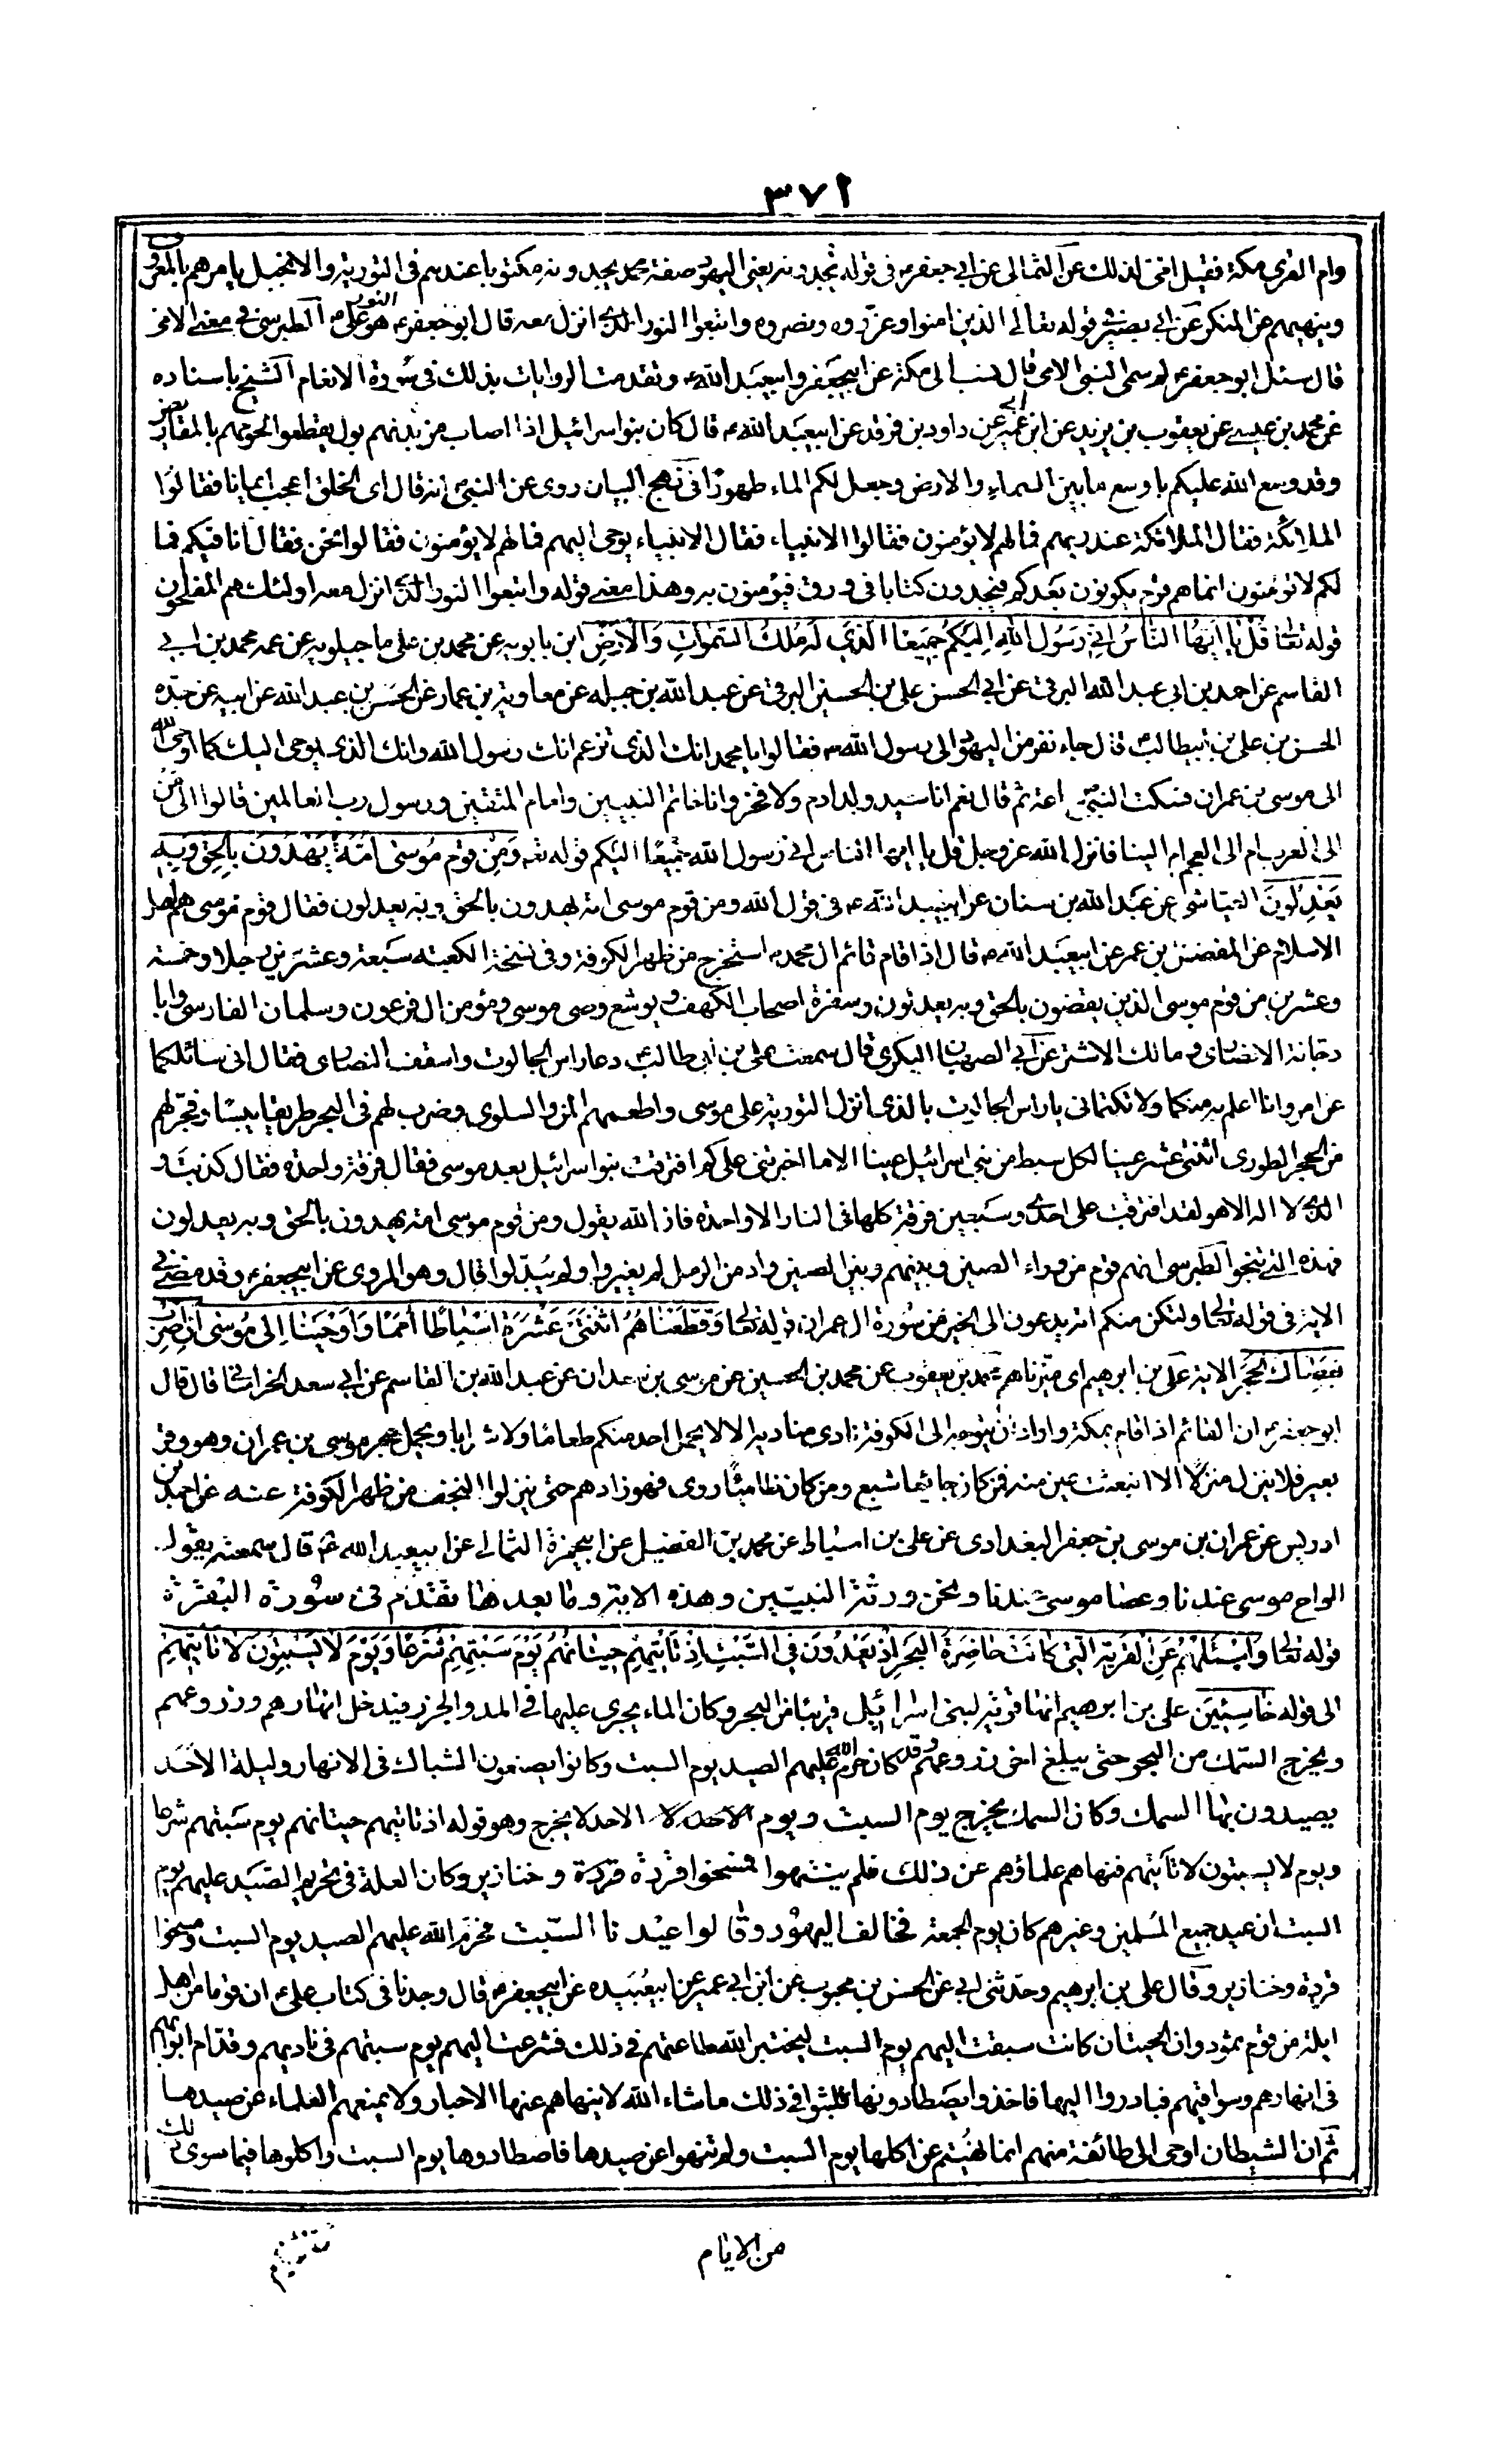 ٣٧١
وام القرى مكة فقيل امى لذلك عن الثمالى عن ابي جعفر ع فى قوله يجدونه يعنى اليهود صفة محمد يجدونه مكتوبا عندهم فى التورية والانجيل يامرهم بالمعروف
وينهيهم عن المنكر عن ابي بصير فى قوله تعالى الذين امنوا وعزروه ونصروه واتبعوا النور الذى انزل معه قال ابو جعفر ع النور هو على ع الطبرسى فى معنى الامى
قال سئل ابو جعفر ع لم سمى النبى الامى قال نسب الى مكة عن ابيجعفر وابيعبد الله ع وتقدمت الروايات بذلك فى سورة الانعام الشيخ باسناده
عن محمد بن عيسى عن يعقوب بن يزيد عن ابن ابى عمير عن داود بن فرقد عن ابيعبد الله ع قال كان بنو اسرائيل اذا اصاب من بدنهم بول يقطعوا لحومهم بالمقاريض
وقد وسع الله عليكم باوسع ما بين السماء والارض وجعل لكم الماء طهورا فى نهج البيان روى عن النبى ص انه قال اى الخلق اعجب ايمانا فقالوا
الملائكة فقال الملائكة عند ربهم فما لهم لا يؤمنون فقالوا الانبياء فقال الانبياء يوحى اليهم فما لهم لا يؤمنون فقالوا نحن فقال انا فيكم فما
لكم لا تؤمنون انما هم قوم يكونون بعدكم فيجدون كتابا فى ورق فيؤمنون به وهذا معنى قوله واتبعوا النور الذى انزل معه اولئك هم المفلحون
قوله تعا قُلْ يا ايَّهُا النّاسُ اِنّى رَسُولُ اللهِ اِلَيْكُمْ جَميعًا الَّذى لَهُ مُلْكُ السَّمواتِ وَالْاَرْضِ ابن بابويه عن محمد بن على ماجيلويه عن عمه محمد بن ابى
القاسم عن احمد بن ابى عبد الله البرقى عن ابى الحسن على بن الحسين البرقى عن عبد الله بن جبله عن معاوية بن عمار عن الحسن بن عبد الله عن ابيه عن جده
الحسن بن على بن ابيطالب ع قال جاء نفر من اليهود الى رسول الله ص فقالوا يا محمد انك الذى تزعم انك رسول الله وانك الذى يوحى اليك كما اوحى الله
الى موسى بن عمران فسكت النبى ص ساعة ثم قال نعم انا سيد ولد ادم ولا فخر وانا خاتم النبيين وامام المتقين ورسول رب العالمين قالوا الى من
الى العرب ام الى العجم ام الينا فانزل الله عز وجل قل يا ايها الناس انى رسول الله جميعًا اليكم قوله تعه وَمِنْ قَوْمِ مُوسى اُمَّةٌ يَهْدُونَ بِالْحَقِّ وَبِهِ
يَعْدِلُونَ العياشى عن عبد الله بن سنان عن ابيعبد الله ع فى قول الله ومن قوم موسى امة يهدون بالحق وبه يعدلون فقال قوم موسى هم اهل
الاسلام عن المفضل بن عمر عن ابيعبد الله ع قال اذا قام قائم ال محمد ع استخرج من ظهر الكوفة وفى نسخة الكعبة سبعة وعشرين رجلا وخمسة
وعشرين من قوم موسى الذين يقضون بالحق وبه يعدلون وسبعة اصحاب الكهف ويوشع وصى موسى ومؤمن ال فرعون وسلمان الفارسى وابا
دجانة الانصارى ومالك الاشتر عن ابى الصهبان البكرى قال سمعت على بن ابى طالب ع دعا راس الجالوت واسقف النصارى فقال انى سائلكما
عن امر وانا اعلم به منكما ولا تكتمانى يا راس الجالوت بالذى انزل التورية على موسى واطعمهم المن والسلوى وضرب لهم فى البحر طريقا يبسا وفجر لهم
من الحجر الطورى اثنتى عشر عينا لكل سبط من بنى اسرائيل عينا الا ما اخبرتنى على كم افترقت بنو اسرائيل بعد موسى فقال فرقة واحدة فقال كذبت و
الذى لا اله الا هو لقد افترقت على احدى وسبعين فرقة كلها فى النار الا واحدة فان الله يقول ومن قوم موسى امة يهدون بالحق وبه يعدلون
فهذه التى تنجو الطبرسى انهم قوم من وراء الصين وبينهم وبين الصين واد من الرمل لم يغيروا ولم يبدلوا قال وهو المروى عن ابيجعفر ع وقد مضى فى
الاية فى قوله تعا ولتكن منكم امة يدعون الى الخير من سورة ال عمران قوله تعا وَقَطَّعْناهُمُ اثْنَتَىْ عَشْرَةَ اَسْباطًا اُمَمًا وَاَوْحَيْنا اِلى مُوسى اَنِ اضْرِبْ
بِعَصاكَ الْحَجَرَ الاية على بن ابرهيم اى ميزناهم محمد بن يعقوب عن محمد بن الحسين عن موسى بن سعدان عن عبد الله بن القاسم عن ابى سعد الخراسانى قال قال
ابو جعفر ع ان القائم اذا قام بمكة واراد ان يتوجه الى الكوفة نادى مناديه الا لا يحمل احد منكم طعاما ولا شرابا ويحمل حجر موسى بن عمران وهو وقر
بعير فلا ينزل منزلا الا انبعث عين منه فمن كان جائعا شبع ومن كان ظامئا روى فهو زادهم حتى ينزلوا النجف من ظهر الكوفة عنه عن احمد بن
ادريس عن عمران بن موسى بن جعفر البغدادى عن على بن اسباط عن محمد بن الفضيل عن ابيحمزة الثمالى عن ابيعبد الله ع قال سمعته يقول
الواح موسى عندنا وعصا موسى عندنا ونحن ورثة النبيين وهذه الاية وما بعدها تقدم فى سورة البقرة
قوله تعا وَاسْئَلْهُمْ عَنِ الْقَرْيَةِ الَّتى كانَتْ حاضِرَةَ الْبَحْرِ اِذْ يَعْدُونَ فِى السَّبْتِ اِذْ تَأْتيهِمْ حيتانُهُمْ يَوْمَ سَبْتِهِمْ شُرَّعًا وَيَوْمَ لا يَسْبِتُونَ لا تَأْتيهِمْ
الى قوله خاسِئينَ على بن ابرهيم انها قرية لبنى اسرائيل قريبا من البحر وكان الماء يجرى عليها فى المد والجزر فيدخل انهارهم وزروعهم
ويخرج السمك من البحر حتى يبلغ اخر زروعهم وقد كان حرم الله عليهم الصيد يوم السبت وكانوا يصنعون الشباك فى الانهار وليلة الاحد
يصيدون بها السمك وكان السمك يخرج يوم السبت ويوم الاحد لا الاحد لا يخرج وهو قوله اذ تاتيهم حيتانهم يوم سبتهم شرعا
ويوم لا يسبتون لا تأتيهم فنهاهم علماؤهم عن ذلك فلم ينتهوا فمسخوا قردة قردة وخنازير وكان العلة فى تحريم الصيد عليهم يوم
السبت ان عيد جميع المسلمين وغيرهم كان يوم الجمعة فخالف اليهود وقالوا عيدنا السبت فحرم الله عليهم الصيد يوم السبت ومسخوا
قردة وخنازير وقال على بن ابرهيم وحدثنى ابى عن الحسن بن محبوب عن ابن ابى عمير عن ابيعبيده عن ابيجعفر ع قال وجدنا فى كتاب على ع ان قوما من اهل
ايلة من قوم ثمود وان الحيتان كانت سبقت اليهم يوم السبت ليختبر الله طاعتهم فى ذلك فشرعت اليهم يوم سبتهم فى ناديهم وقدام ابوابهم
فى انهارهم وسواقيهم فبادروا اليها فاخذوا يصطادونها فلبثوا فى ذلك ما شاء الله لا ينهاهم عنها الاحبار ولا يمنعهم العلماء عن صيدها
ثم ان الشيطان اوحى الى طائفة منهم انما نهيتم عن اكلها يوم السبت ولم تنهوا عن صيدها فاصطادوها يوم السبت واكلوها فيما سوى ذلك
من الايام